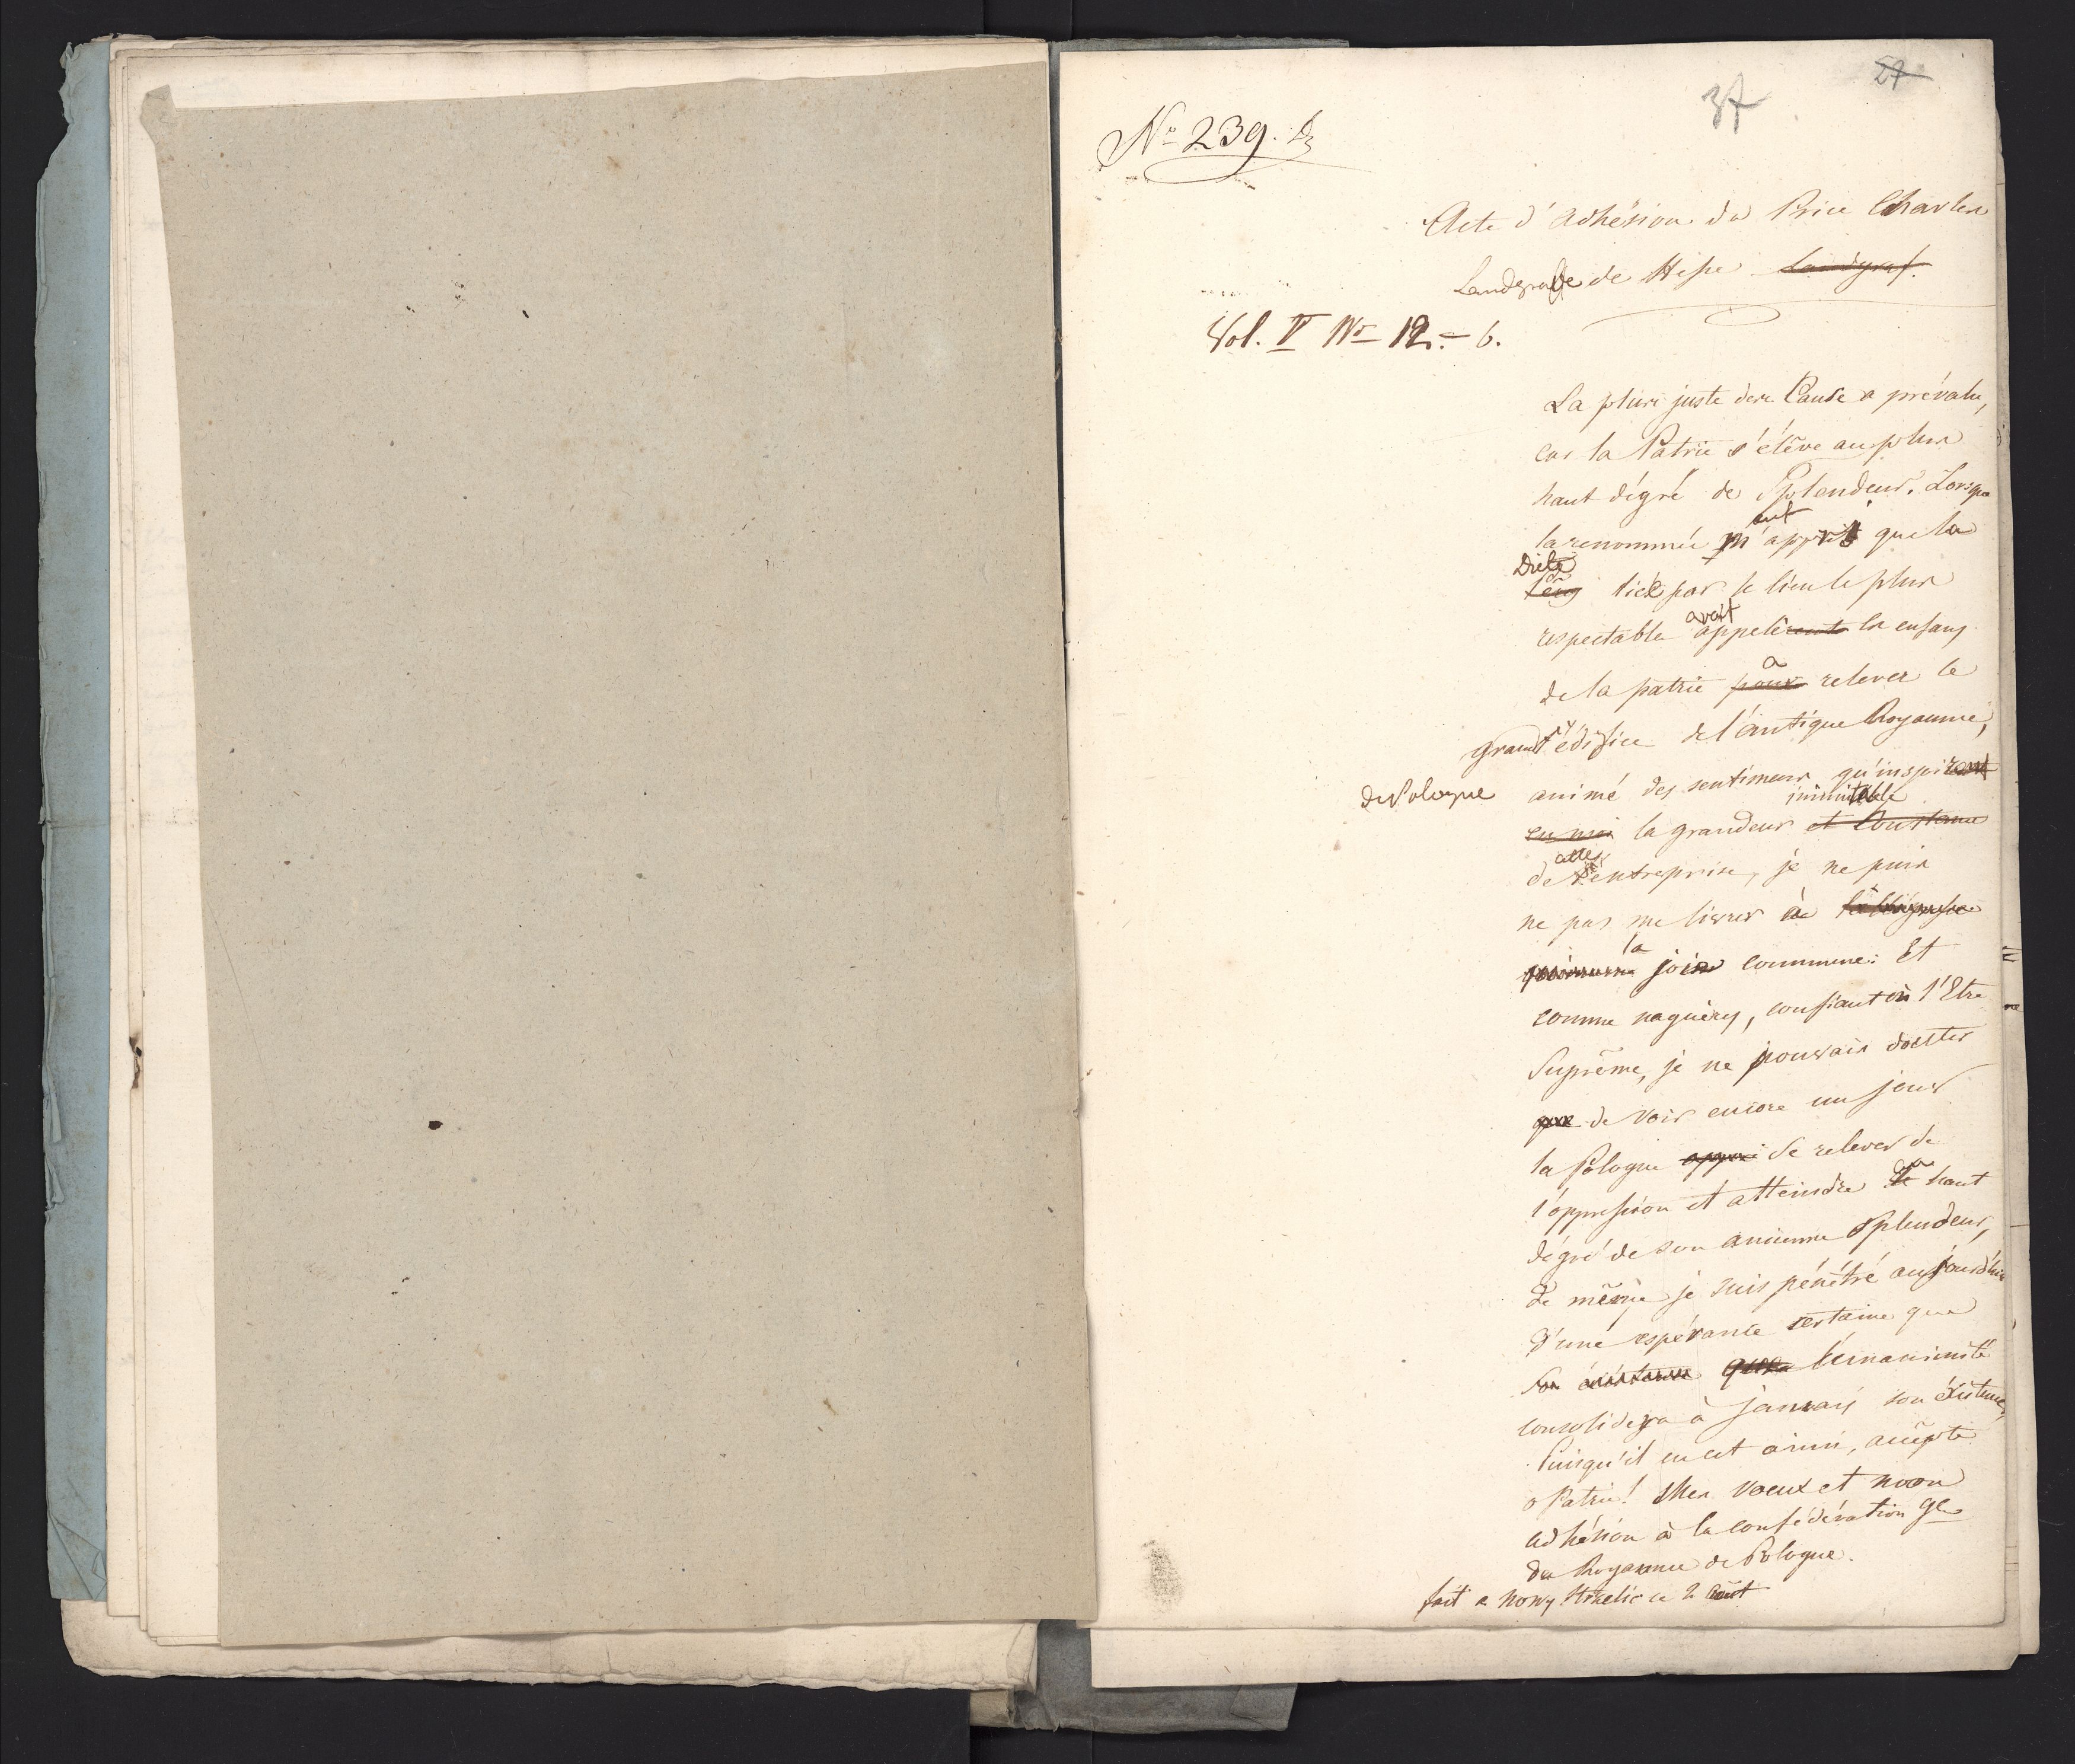 27
37
No 239.
Acte d'adhésion du Price Charles
Landgrafe de Hesse Landgraf.
Vol. V No 12.- 6.
La plus juste des Cause a prévalu,
car la Patrie s'élève au plus
haut dégré de Splendeur. Lorsque
la renommée m'apprit que la
Diete
liée par le lien le plus
avait
respectable appelèrent les enfans
à
de la patrie pour relever le
grand édifice de l'antique Royaume,
de Pologne animé des sentimens qu'inspirent
inimitable
en moi la grandeur et Constance
cette
de l'entreprise, je ne puis
ne pas me livrer à
la
joie commune: Et
comme naguères, confiant en l'Etre
Suprême, je ne pouvais douter
que de voir encore un jour
la Pologne se relever de
l'oppression et atteindre le haut
dégré de son ancienne Splendeur,
de même je suis pénétré aujourd'hui
d'une espérance certaine que
son existence que l'unanimité
consolidera à jamais son éxistence,
Puisqu'il en est ainsi, accepte
o Patrie! Mes voeux et mon
adhésion à la confédération gle
du Royaume de Pologne.
fait a Nowy Strzelic ce 2 aout